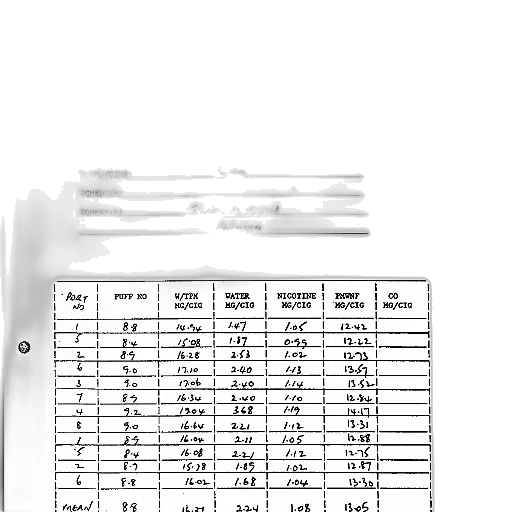 PORT NO PUFF NO W/TPM MG/CIG WATER MG/CIG NICOTINE MG/CIG PMWNF MG/CIG CO MG/CIG
1 8.8 14.94 1.47 1.05 12.42
5 8.4 15.08 1.87 0.99 12.22
2 8.9 16.28 2.53 1.02 12.73
6 9.0 17.10 2.40 1.13 13.57
3 9.0 17.06 2.40 1.14 13.52
7 8.9 16.34 2.40 1.10 12.84
4 9.2 19.04 3.68 1.19 14.17
8 9.0 16.64 2.21 1.12 13.31
1 8.9 16.04 2.11 1.05 12.88
5 8.4 16.08 2.21 1.12 12.75
2 8.7 15.78 1.89 1.02 12.87
6 8.8 16.02 1.68 1.04 13.30
MEAN 8.8 2.24 1.08 13.05